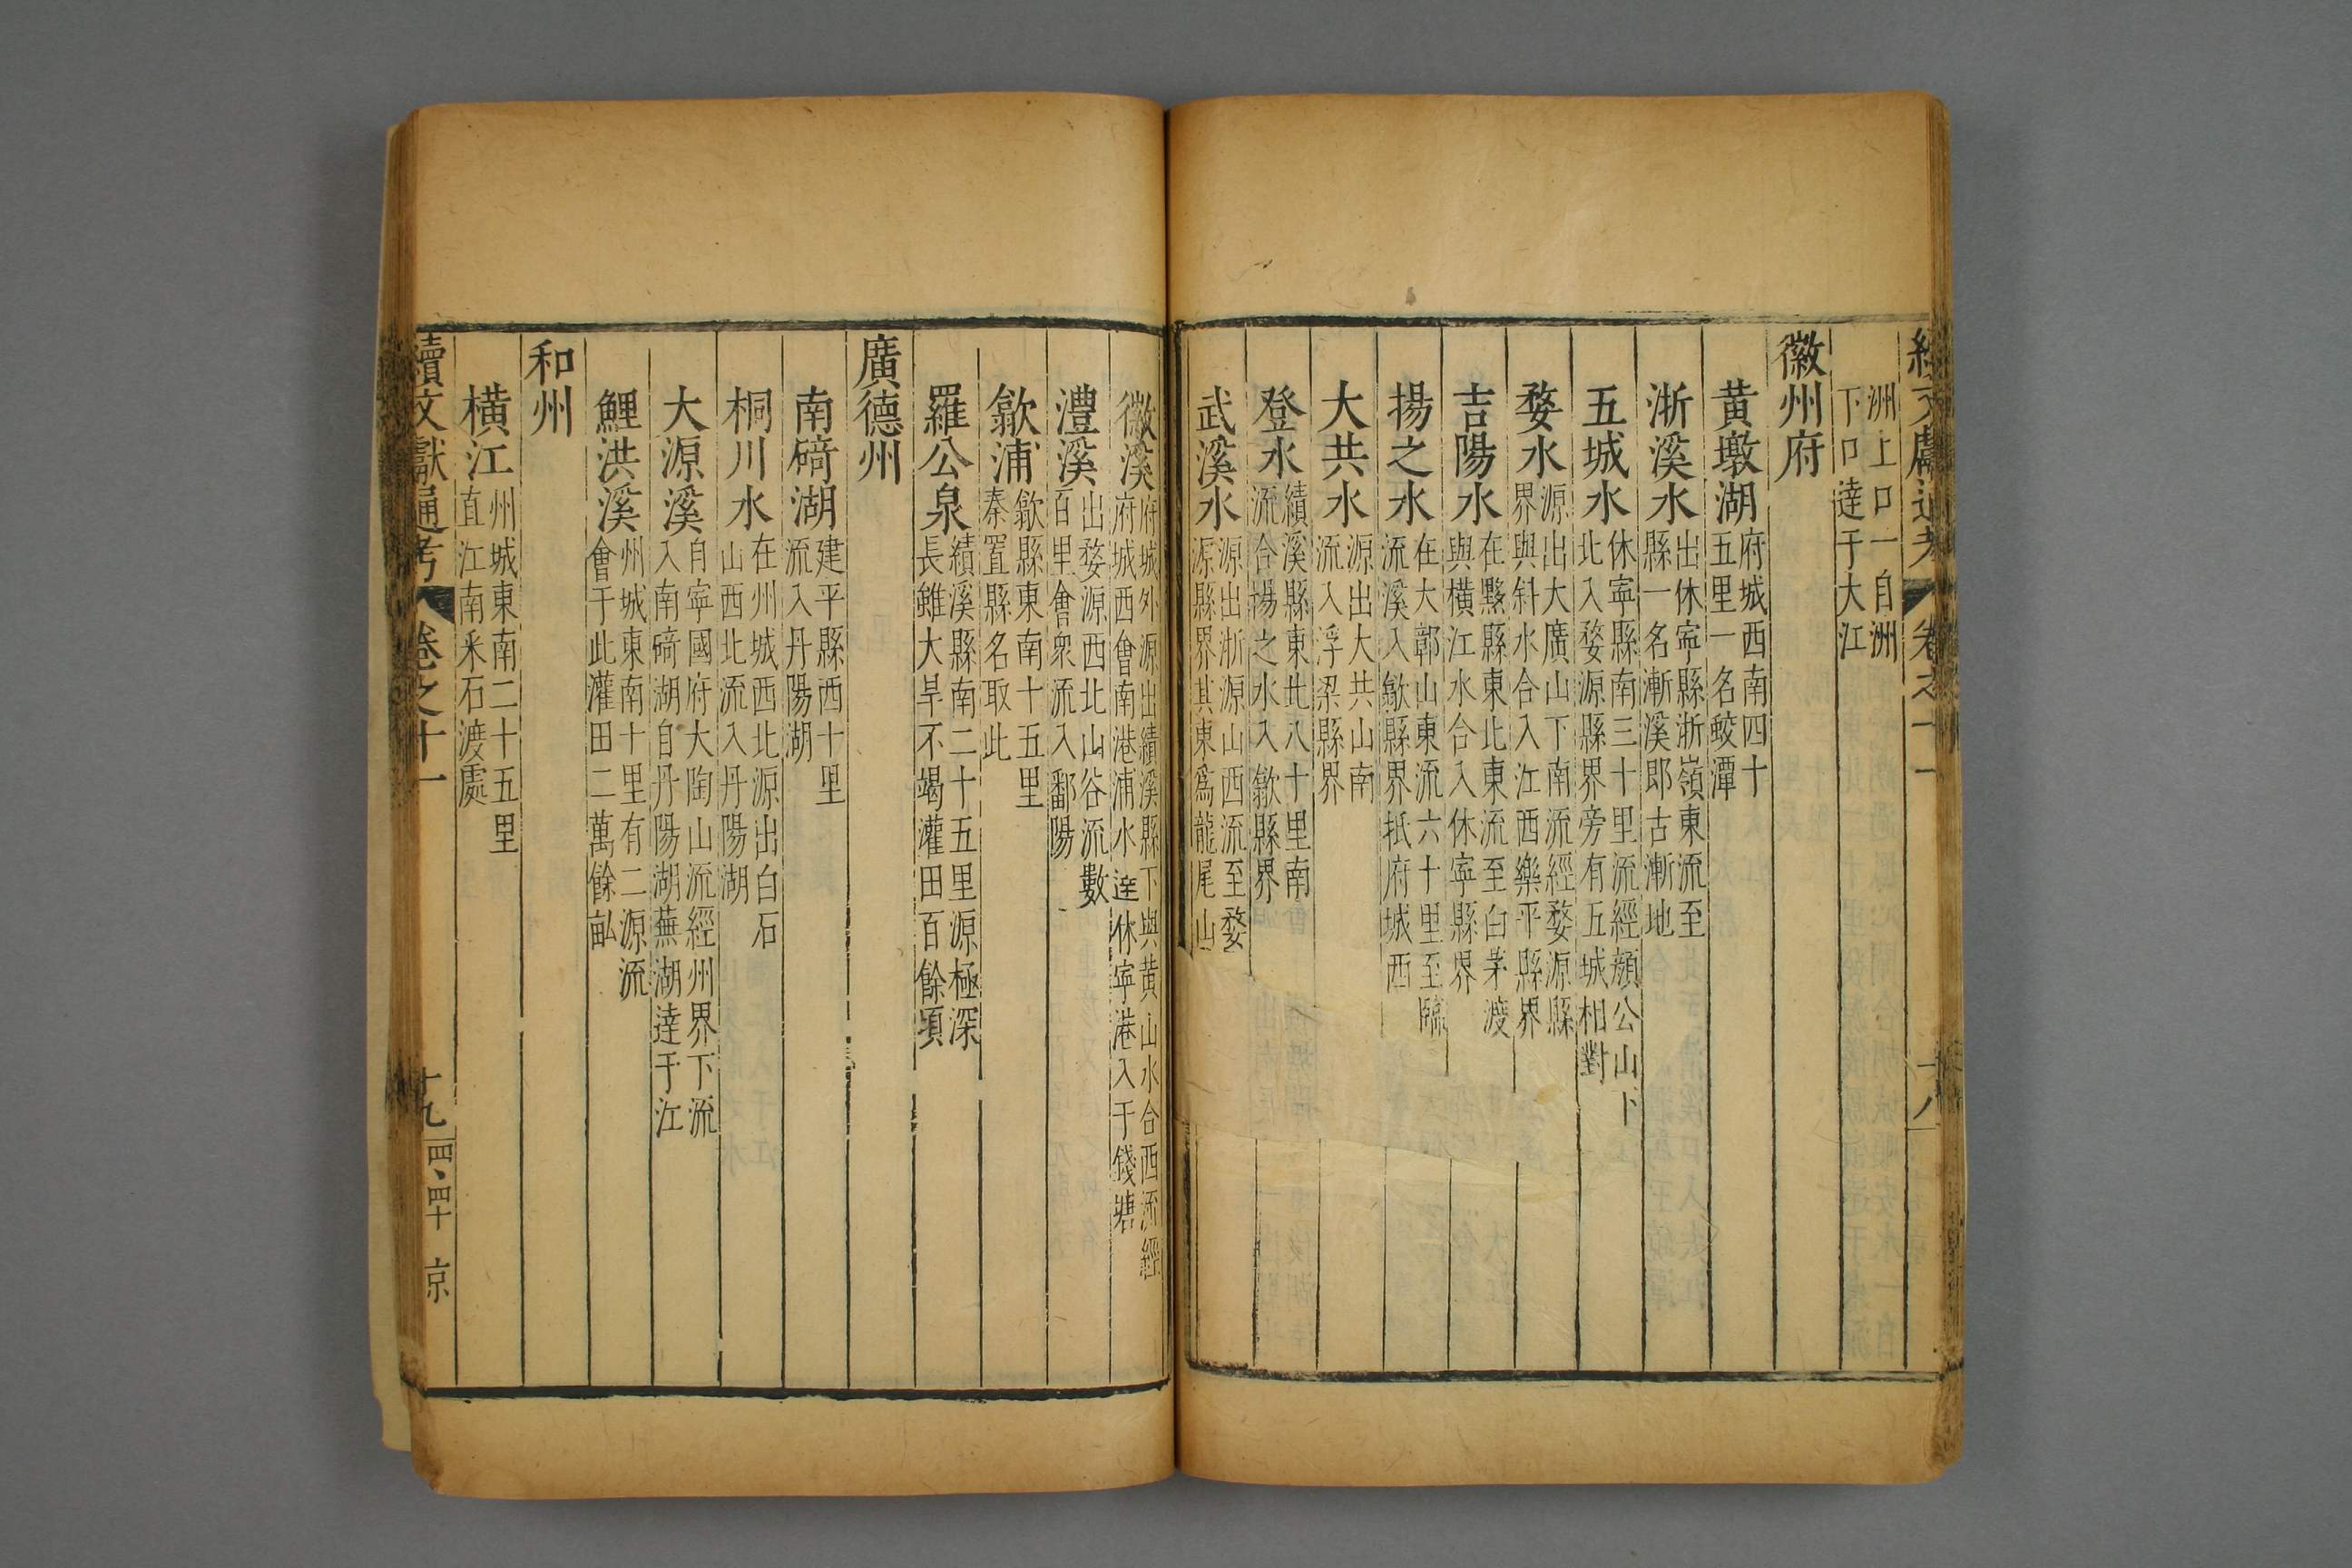 續文獻通考 卷之十一 十八
洲上口一自洲
下口達于大江
徽州府
黄墩湖府城西南四十
五里一名蛟潭
浙溪水出休寧縣浙嶺東流至
縣一名漸溪郎古漸地
五城水休寧縣南三十里流經頽公山下
北入婺源縣界旁有五城相對
婺水源出大廣山下南流經婺源縣
界與斜水合入江西樂平縣界
吉陽水在黟縣東北東流至白茅渡
與橫江水合入休寧縣界
揚之水在大鄣山東流六十里至臨
流溪入歙縣界抵府城西
大共水源出大共山南
流入浮梁縣界
登水績溪縣東北八十里南
流合揚之水入歙縣界
武溪水源出浙源山西流至婺
源縣界其東爲龍尾山
徽溪府城外源出績溪縣下與黄山水合西流經
府城西會南港浦水達休寧港入于錢塘
灃溪出婺源西北山谷流數
百里會衆流入鄱陽
歙浦歙縣東南十五里
秦置縣名取此
羅公泉績溪縣南二十五里源極深
長雖大旱不竭灌田百餘頃
廣德州
南碕湖建平縣西十里
流入丹陽湖
桐川水在州城西北源出白石
山西北流入丹陽湖
大源溪自寧國府大陶山流經州界下流
入南碕湖自丹陽湖蕪湖達于江
鯉洪溪州城東南十里有二源流
會于此灌田二萬餘畝
和州
橫江州城東南二十五里
直江南釆石渡處
續文獻通考 卷之十一 十九 四、四十 京